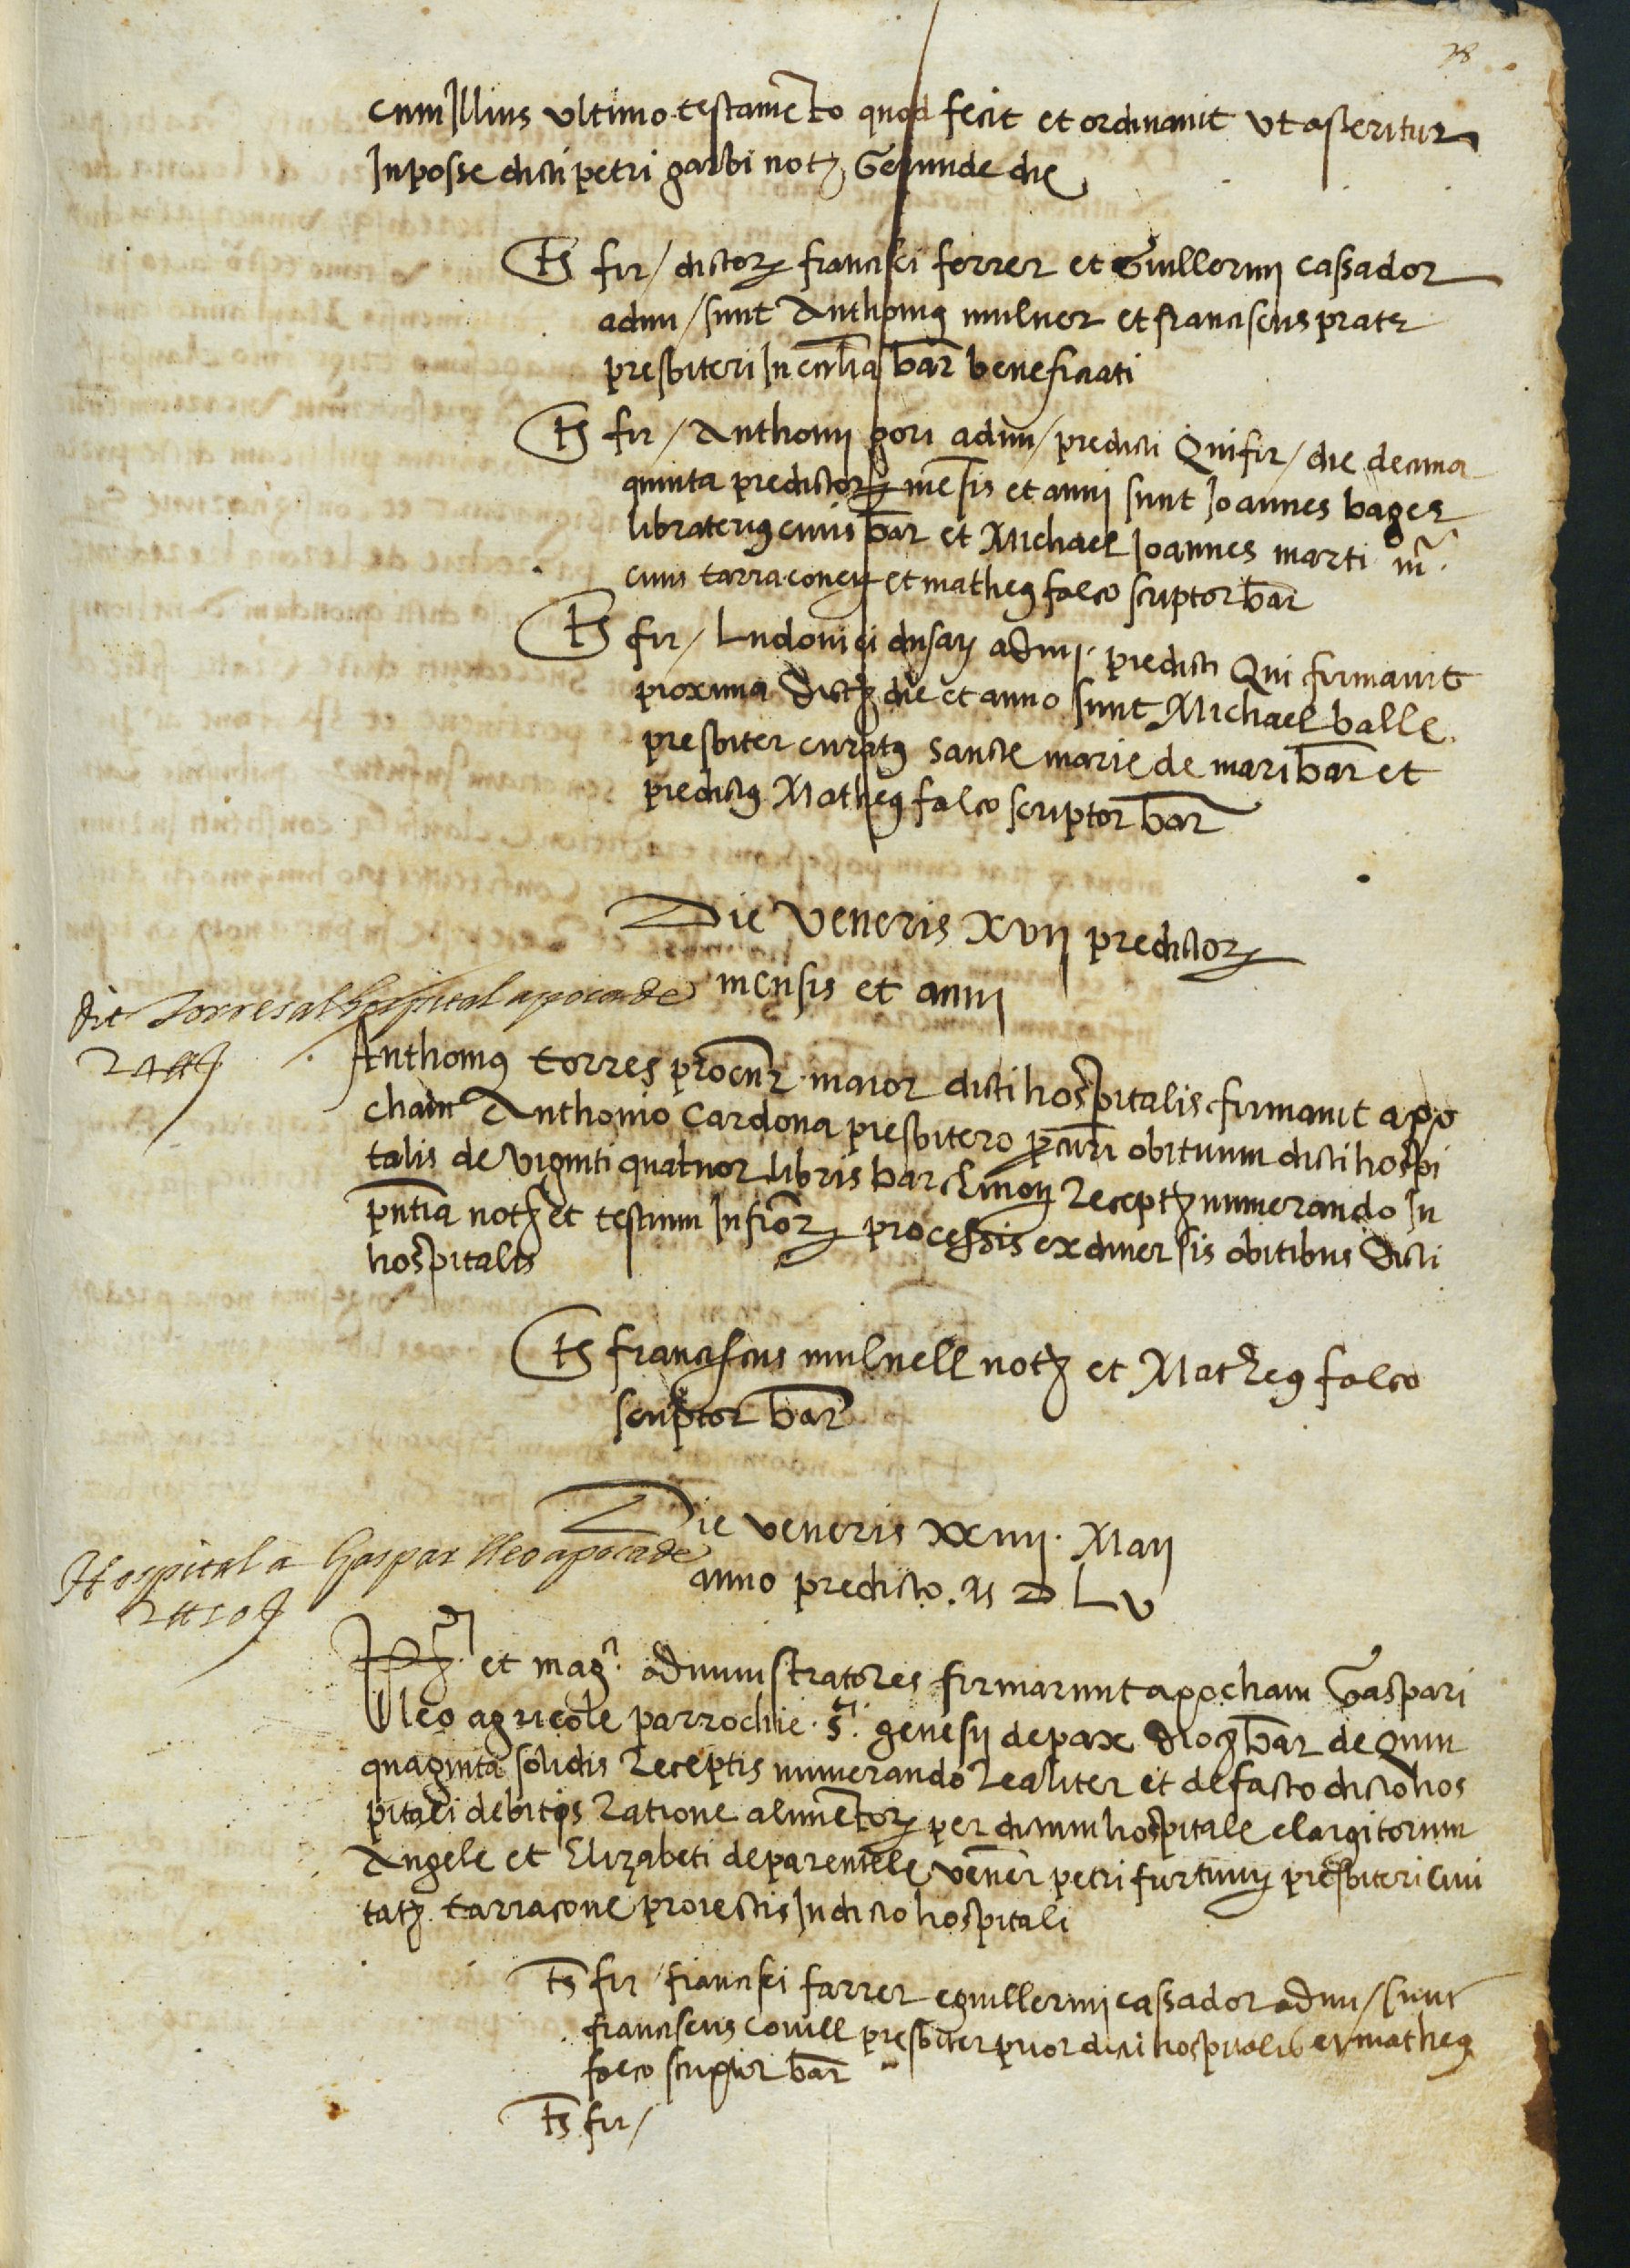 78
cum Illius ultimo testamẽto quod fecit et ordinauit ut asseritur
In posse dicti petri garbi notꝫ Gerunde die
Ts fir/ dictoꝝ francisci ferrer et Guillermi cassador
admi/ sunt Anthoniꝰ mulner et franciscus prats
presbiteri In ecclia bar̄ beneficiati
Ts fir/ Anthonij gori admi/ predicti Qui fir/ die decima
quinta predictoꝝ mēsis et anni sunt Joannes bages
librateriꝰ ciuis bar̄ et Michael Joannes marti
ciuis tarraconeñ et matheꝰ falco scriptor bar̄
Ts fir/ Ludouici dusay admi. predicti Qui firmauit
proxima dictꝫ die et anno sunt Michael balle
presbiter curatꝰ sancte marie de mari bar̄ et
predictꝰ Matheꝰ falco scriptor bar̄
Die Veneris xvij predictoꝝ
mensis et anni
dit Torres al hospital apoca de
24 ₶
Anthoniꝰ torres procur̄ maior dicti hospitalis firmauit apo
cham Anthonio Cardona presbitero ꝓcur̄i obituum dicti hospi
talis de viginti quatuor libris barchinoñ receptꝫ numerando In
pñtia notꝫ et testium Infr̄oꝝ processis ex diuersis obitibus dicti
hospitalis
Ts franciscus mulnell notꝫ et Matheꝰ falco
scriptor bar̄
Die veneris xxiiij. Maij
anno predicto. M D L v
Hospital a Gaspar lleo apoca de
2 ₶ 10 s
et mag.ci administratores firmarunt apocham Gaspari
lleo agricole parrochie. s.ti genesij de pax dioꝫ bar̄ de Quin
quaginta solidis receptis numerando realiter et de facto dicto hos
pitali debitis ratione alimētoꝝ per dictum hospitale elargitorum
Angele et Elizabeti de parentele vener̄ petri furtuny presbiteri ciui
tatꝫ tarracone proiectis In dicto hospitali
Ts fir/ francisci farrer eguillermi cassador admi/ sunt
franciscus couill presbiter prior dicti hospitalis et matheꝰ
falco scriptor bar̄
Ts fir/